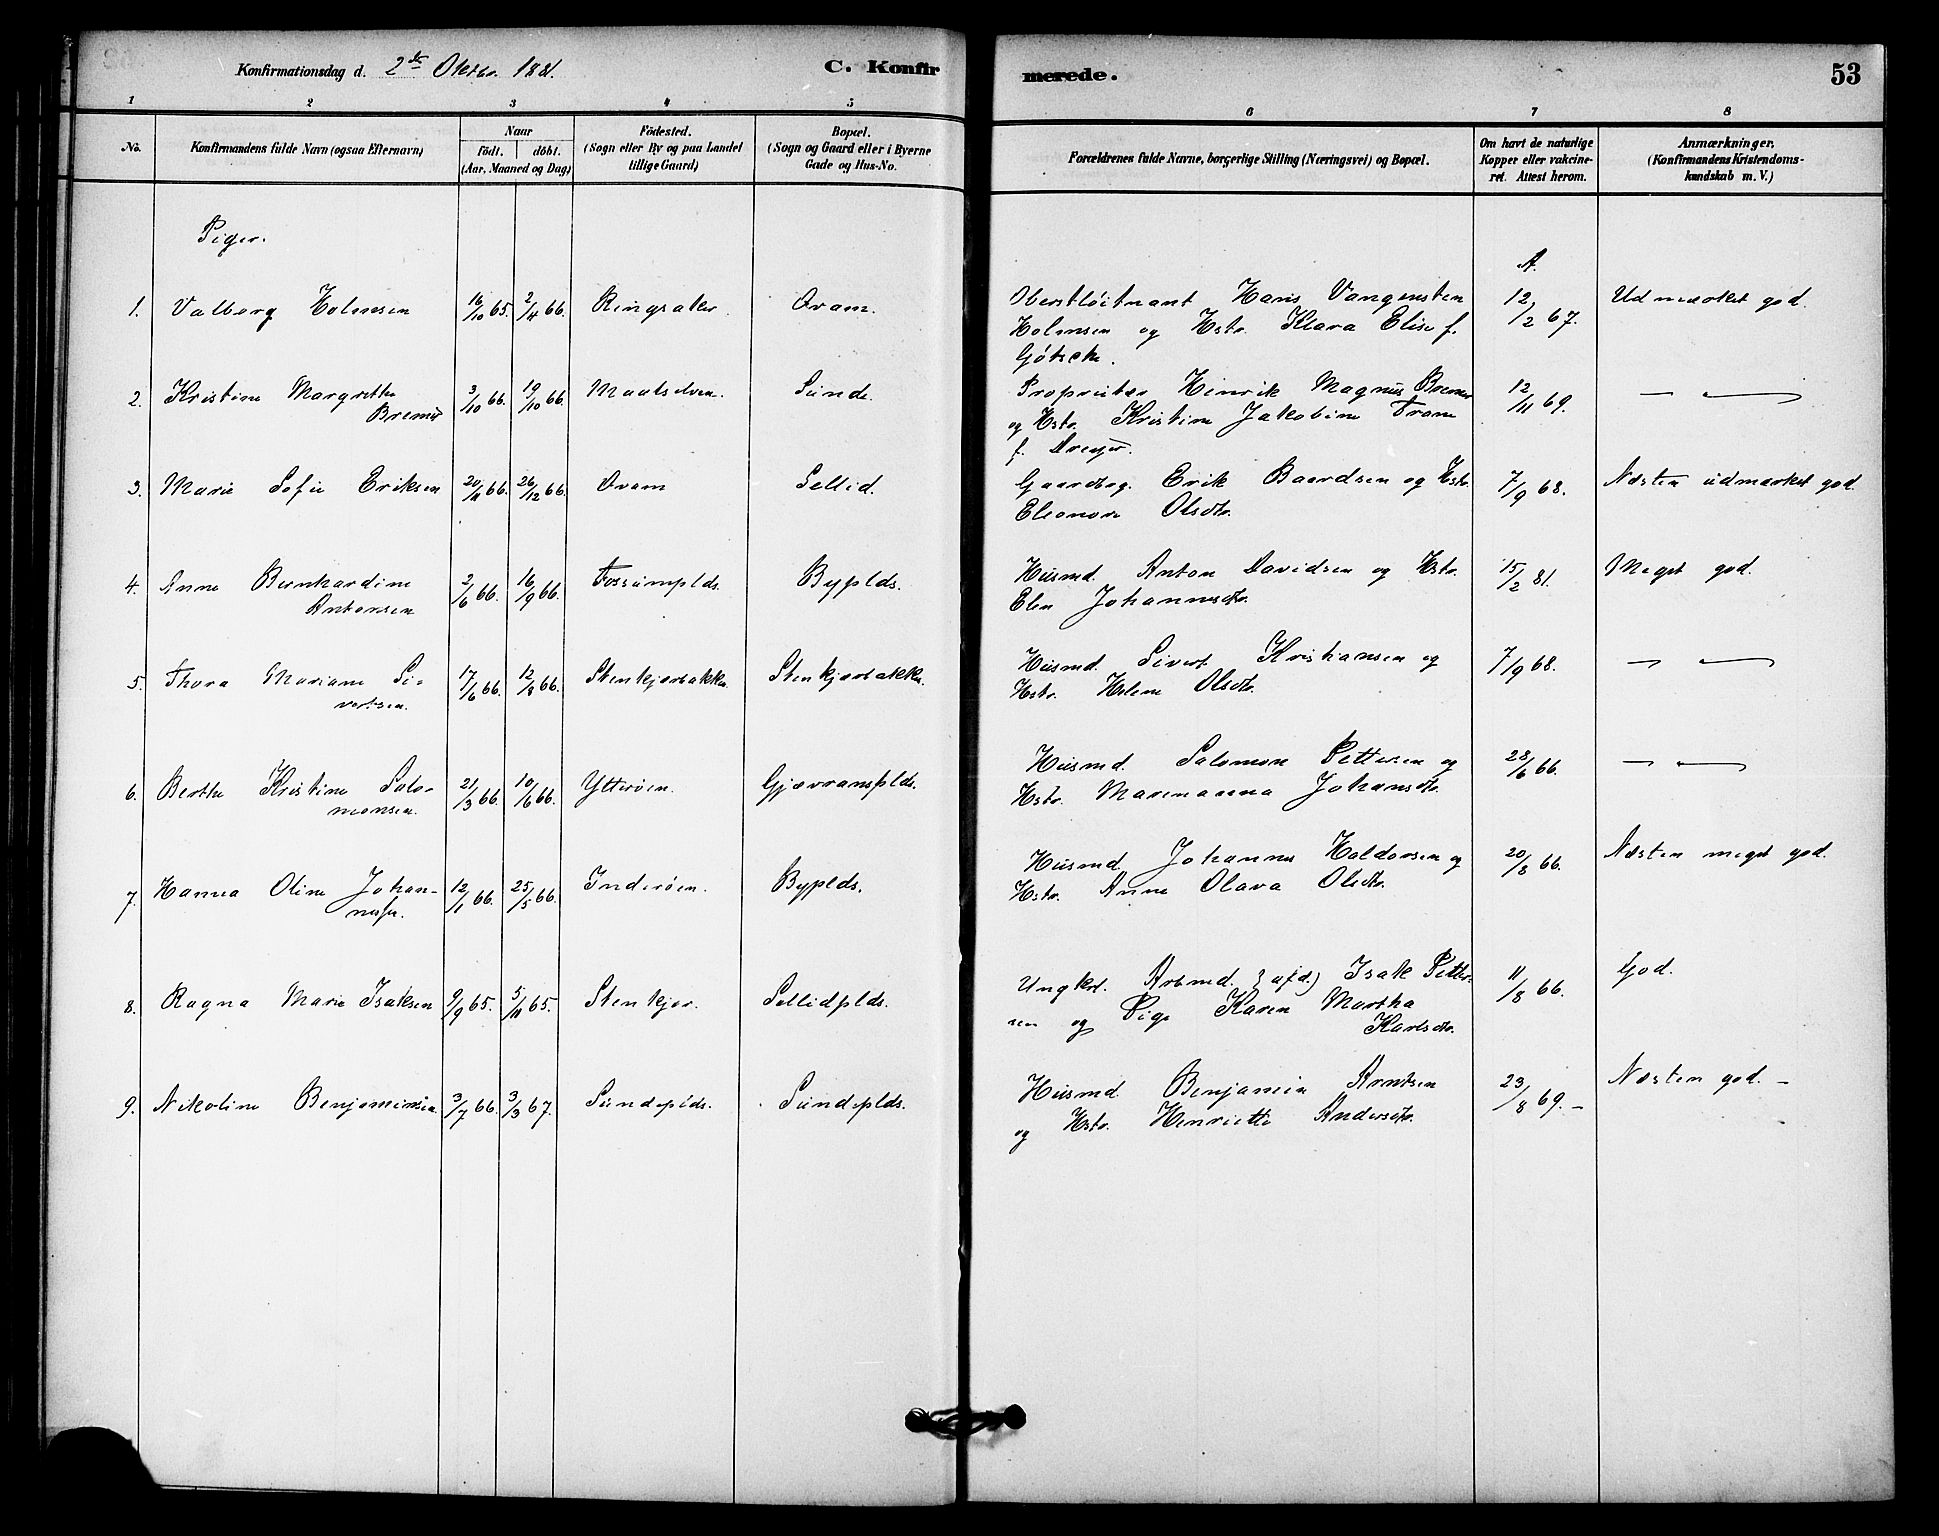 Konfirmationsdag d. 2de Oktbr. 1881.
C. Konfirmerede.
53
1 2 3 4 5 6 7 8
No.
Konfirmandens fulde Navn (ogsaa Efternavn)
Naar
födt. döbt.
(Aar, Maaned og Dag)
Födested.
(Sogn eller By og paa Landet
tillige Gaard)
Bopæl.
(Sogn og Gaard eller i Byerne
Gade og Hus-No.
Forældrenes fulde Navne, borgerlige Stilling (Næringsvei) og Bopæl.
Om havt de naturlige
Kopper eller vakcine-
ret. Attest herom.
Anmærkninger.
(Konfirmandens Kristendoms-
kundskab m. V.)
Piger.
A.
1. Valborg Holmsen 16/10 65. 2/4 66. Ringsaker. Qvam. Oberstløitnant Hans Vangensten 12/2 67. Udmærket god.
Holmsen og Hstr. Klara Elise f.
Gøtsche.
2. Kristine Margrethe 3/10 66. 19/10 66. Maalselven. Sunde. Proprietær Hinrik Magnus Bremer 12/11 69. — —
Bremer og Hstr. Kristine Jakobine Trane
f. Dreyer.
3. Marie Sofie Eriksen 20/11 66. 26/12 66. Qvam Sellid. Gaardbrg. Erik Baardsen og Hstr. 7/9 68. Næsten udmærket god.
Eleonore Olsdtr.
4. Anne Bernhardine 2/6 66. 16/9 66. Fossumplds. Byplds. Husmd. Anton Davidsen og Hstr. 15/2 81. Meget god.
Antonsen Elen Johannesdtr.
5. Thora Mariane Si- 17/6 66. 12/8 66. Stenkjærbakke. Stenkjærbakke. Husmd. Sivert Kristiansen og 7/9 68. — —
vertsen. Hstr. Helene Olsdtr.
6. Berthe Kristine Salo- 21/3 66. 10/6 66. Ytterøen. Gjævranplds. Husmd. Salomon Pettersen og 28/6 66. — —
monsen. Hstr. Marenanna Johansdtr.
7. Hanna Oline Johan- 12/1 66. 25/5 66. Inderøen. Byplds. Husmd. Johannes Haldorsen og 20/8 66. Næsten meget god.
nessen. Hstr. Anne Olava Olsdtr.
8. Ragna Marie Isaksen 9/9 65. 5/11 65. Stenkjær. Sellidplds. Ungkrl. Arbmd. (afd.) Isak Petter- 11/8 66. God.
sen og Pige Karen Martha
Karlsdtr.
9. Nikoline Benjaminsen 3/7 66. 3/3 67. Sundeplds. Sundeplds. Husmd. Benjamin Arntsen 23/8 69.– Næsten god. –
og Hstr. Henriette Andersdtr.